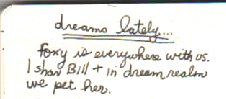 dreams lately....
Foxy is everywhere with us.
I show Bill + in dream realm
we pet her.